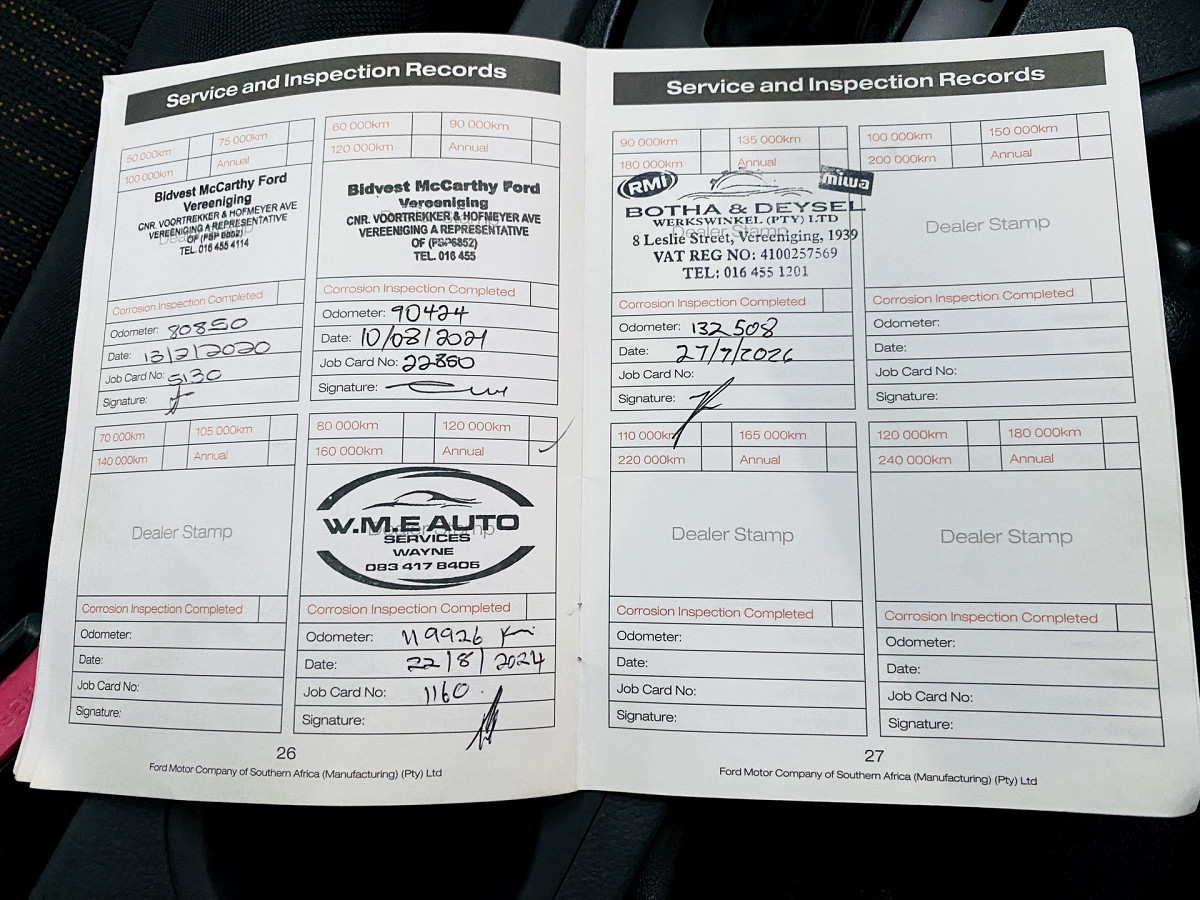 Service and Inspection Records
50 000km 75 000km
100 000km Annual
Bidvest McCarthy Ford
Vereeniging
CNR. VOORTREKKER & HOFMEYER AVE
VEREENIGING A REPRESENTATIVE
OF (FSP 6852)
TEL. 016 455 4114
Corrosion Inspection Completed
Odometer: 80850
Date: 13/2/2020
Job Card No: 5130
Signature:
60 000km 90 000km
120 000km Annual
Bidvest McCarthy Ford
Vereeniging
CNR. VOORTREKKER & HOFMEYER AVE
VEREENIGING A REPRESENTATIVE
OF (FSP6852)
TEL. 016 455
Corrosion Inspection Completed
Odometer: 90424
Date: 10/03/2021
Job Card No: 22850
Signature:
70 000km 105 000km
140 000km Annual
Dealer Stamp
Corrosion Inspection Completed
Odometer:
Date:
Job Card No:
Signature:
80 000km 120 000km
160 000km Annual
Dealer Stamp
W.M.E AUTO
SERVICES
WAYNE
083 417 8405
Corrosion Inspection Completed
Odometer: 119926 Km
Date: 22/8/2024
Job Card No: 1160.
Signature:
26
Ford Motor Company of Southern Africa (Manufacturing) (Pty) Ltd
Service and Inspection Records
90 000km 135 000km
180 000km Annual
RMI miwa
BOTHA & DEYSEL
WERKSWINKEL (PTY) LTD
Dealer Stamp
8 Leslie Street, Vereeniging, 1939
VAT REG NO: 4100257569
TEL: 016 455 1201
Corrosion Inspection Completed
Odometer: 132 508
Date: 27/7/2026
Job Card No:
Signature:
100 000km 150 000km
200 000km Annual
Dealer Stamp
Corrosion Inspection Completed
Odometer:
Date:
Job Card No:
Signature:
110 000km 165 000km
220 000km Annual
Dealer Stamp
Corrosion Inspection Completed
Odometer:
Date:
Job Card No:
Signature:
120 000km 180 000km
240 000km Annual
Dealer Stamp
Corrosion Inspection Completed
Odometer:
Date:
Job Card No:
Signature:
27
Ford Motor Company of Southern Africa (Manufacturing) (Pty) Ltd